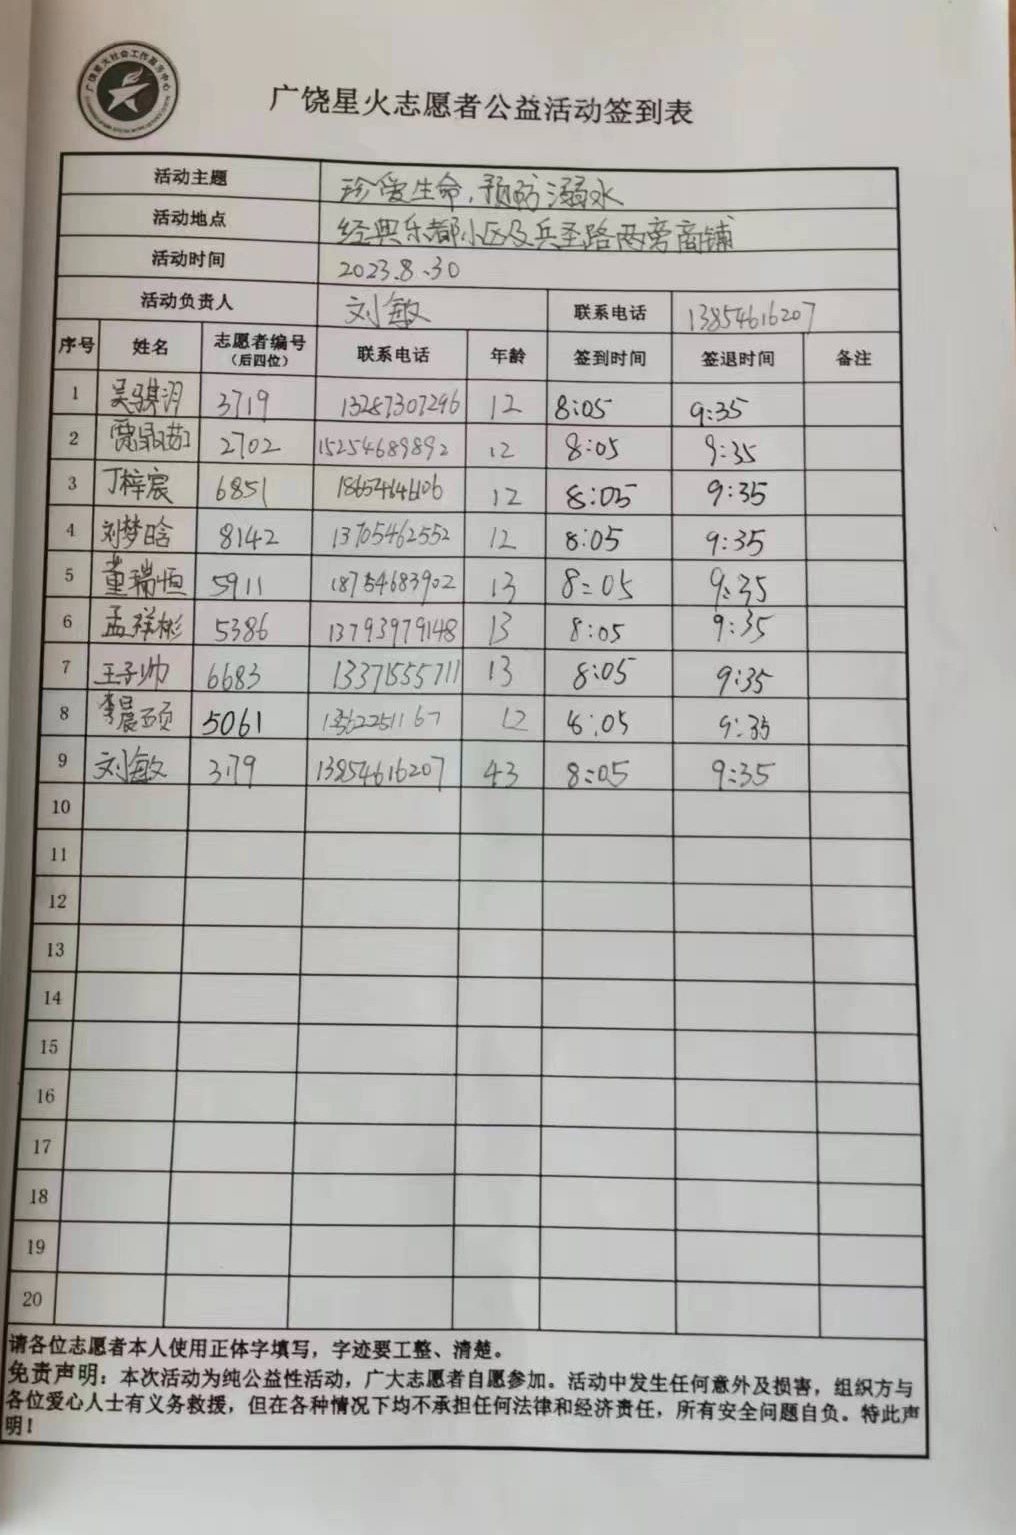 广饶星火社会工作服务中心
广饶星火志愿者公益活动签到表
活动主题 珍爱生命,预防溺水
活动地点 经典乐都小区及兵圣路两旁商铺
活动时间 2023.8.30
活动负责人 刘敏 联系电话 13854616207
序号 姓名 志愿者编号（后四位） 联系电话 年龄 签到时间 签退时间 备注
1 3719 13287307296 12 8:05 9:35
2 2702 15254689892 12 8:05 9:35
3 丁梓宸 6851 18654646106 12 8:05 9:35
4 刘梦晗 8142 13705462552 12 8:05 9:35
5 董瑞恒 5911 18754683902 13 8:05 9:35
6 孟祥彬 5386 13793979148 13 8:05 9:35
7 王子帅 6683 13371555711 13 8:05 9:35
8 李晨硕 5061 13622511 67 12 8:05 9:35
9 刘敏 3179 13854616207 43 8:05 9:35
10
11
12
13
14
15
16
17
18
19
20
请各位志愿者本人使用正体字填写，字迹要工整、清楚。
免责声明：本次活动为纯公益性活动，广大志愿者自愿参加。活动中发生任何意外及损害，组织方与
各位爱心人士有义务救援，但在各种情况下均不承担任何法律和经济责任，所有安全问题自负。特此声
明！